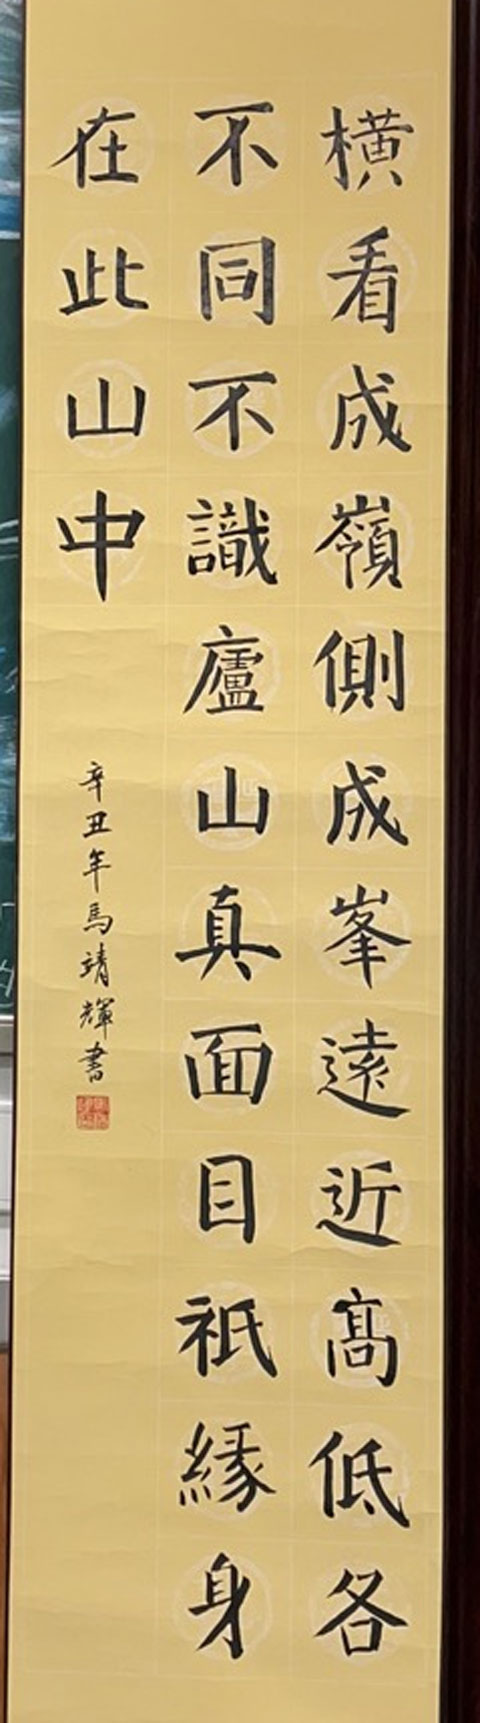 橫看成嶺側成峯遠近髙低各
不同不識廬山真面目祇緣身
在此山中
辛丑年馬靖輝書